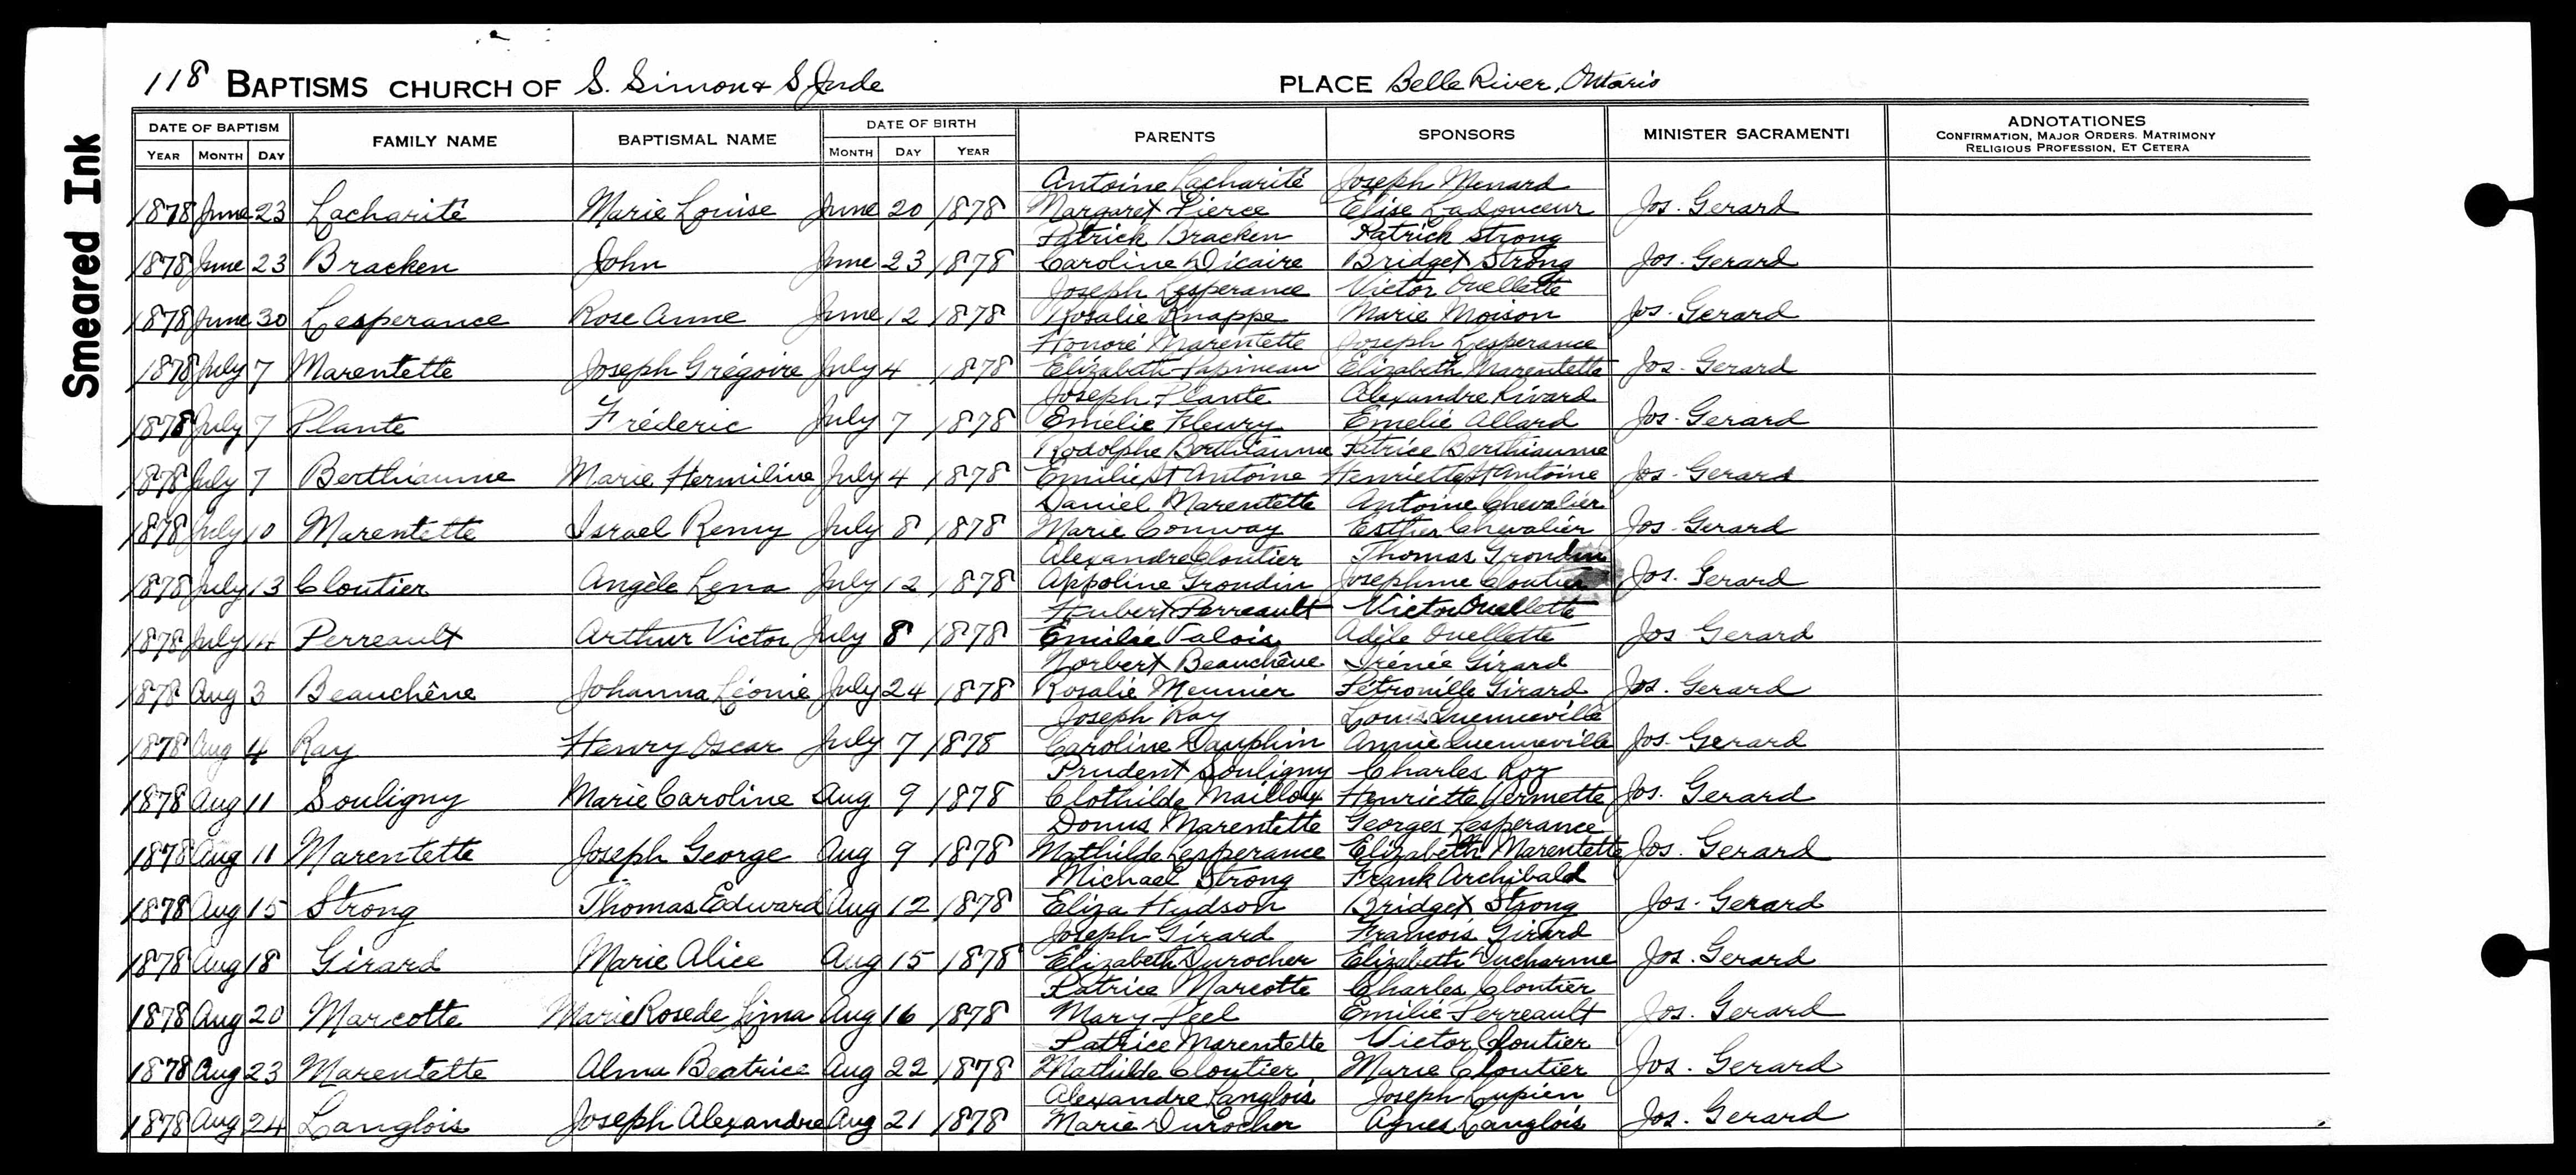 118 BAPTISMS CHURCH OF S. Simon & S. Jude PLACE Belle River, Ontario
Smeared Ink
DATE OF BAPTISM FAMILY NAME BAPTISMAL NAME DATE OF BIRTH PARENTS SPONSORS MINISTER SACRAMENTI ADNOTATIONES
CONFIRMATION, MAJOR ORDERS. MATRIMONY
RELIGIOUS PROFESSION, ET CETERA
YEAR MONTH DAY MONTH DAY YEAR
Antoine Lacharité Joseph Menard
1878 June 23 Lacharité Marie Louise June 20 1878 Margaret Pierce Elise Ladouceur Jos. Gerard
Patrick Bracken Patrick Strong
1878 June 23 Bracken John June 23 1878 Caroline Dicaire Bridget Strong Jos. Gerard
Joseph Lesperance Victor Ouellette
1878 June 30 Lesperance Rose Anne June 12 1878 Rosalie Knappe Marie Moison Jos. Gerard
Honoré Marentette Joseph Lesperance
1878 July 7 Marentette Joseph Grégoire July 4 1878 Elizabeth Papineau Elizabeth Marentette Jos. Gerard
Joseph Plante Alexandre Rivard
1878 July 7 Plante Fréderic July 7 1878 Emélie Fleury Emelie Allard Jos. Gerard
Rodolphe Berthiaume Patrice Berthiaume
1878 July 7 Berthiaume Marie Hermiline July 4 1878 Emilie St Antoine Henriette St Antoine Jos. Gerard
Daniel Marentette Antoine Chevalier
1878 July 10 Marentette Israel Remy July 8 1878 Marie Conway Esther Chevalier Jos. Gerard
Alexandre Cloutier Thomas Grondin
1878 July 13 Cloutier Angèle Lena July 12 1878 Appoline Grondin Josephine Cloutier Jos. Gerard
Hubert Perreault Victor Ouellette
1878 July 14 Perreault Arthur Victor July 8 1878 Emilie Valois Adèle Ouellette Jos Gerard
Norbert Beauchêne Irénée Girard
1878 Aug 3 Beauchêne Johanna Léonie July 24 1878 Rosalie Meunier Pétronille Girard Jos. Gerard
Joseph Ray Louis Quenneville
1878 Aug 4 Ray Henry Oscar July 7 1878 Caroline Dauphin Annie Quenneville Jos. Gerard
Prudent Souligny Charles Roy
1878 Aug 11 Souligny Marie Caroline Aug 9 1878 Clothilde Mailloux Henriette Vermette Jos. Gerard
Donus Marentette Georges Lesperance
1878 Aug 11 Marentette Joseph George Aug 9 1878 Mathilde Lesperance Elizabeth Marentette Jos. Gerard
Michael Strong Frank Archibald
1878 Aug 15 Strong Thomas Edward Aug 12 1878 Eliza Hudson Bridget Strong Jos. Gerard
Joseph Girard François Girard
1878 Aug 18 Girard Marie Alice Aug 15 1878 Elizabeth Durocher Elizabeth Ducharme Jos. Gerard
Patrice Marcotte Charles Cloutier
1878 Aug 20 Marcotte Marie Rose de Lima Aug 16 1878 Mary Peel Emilie Perreault Jos. Gerard
Patrice Marentette Victor Cloutier
1878 Aug 23 Marentette Alma Beatrice Aug 22 1878 Mathilde Cloutier Marie Cloutier Jos. Gerard
Alexandre Langlois Joseph Lupien
1878 Aug 24 Langlois Joseph Alexandre Aug 21 1878 Marie Durocher Agnes Langlois Jos. Gerard